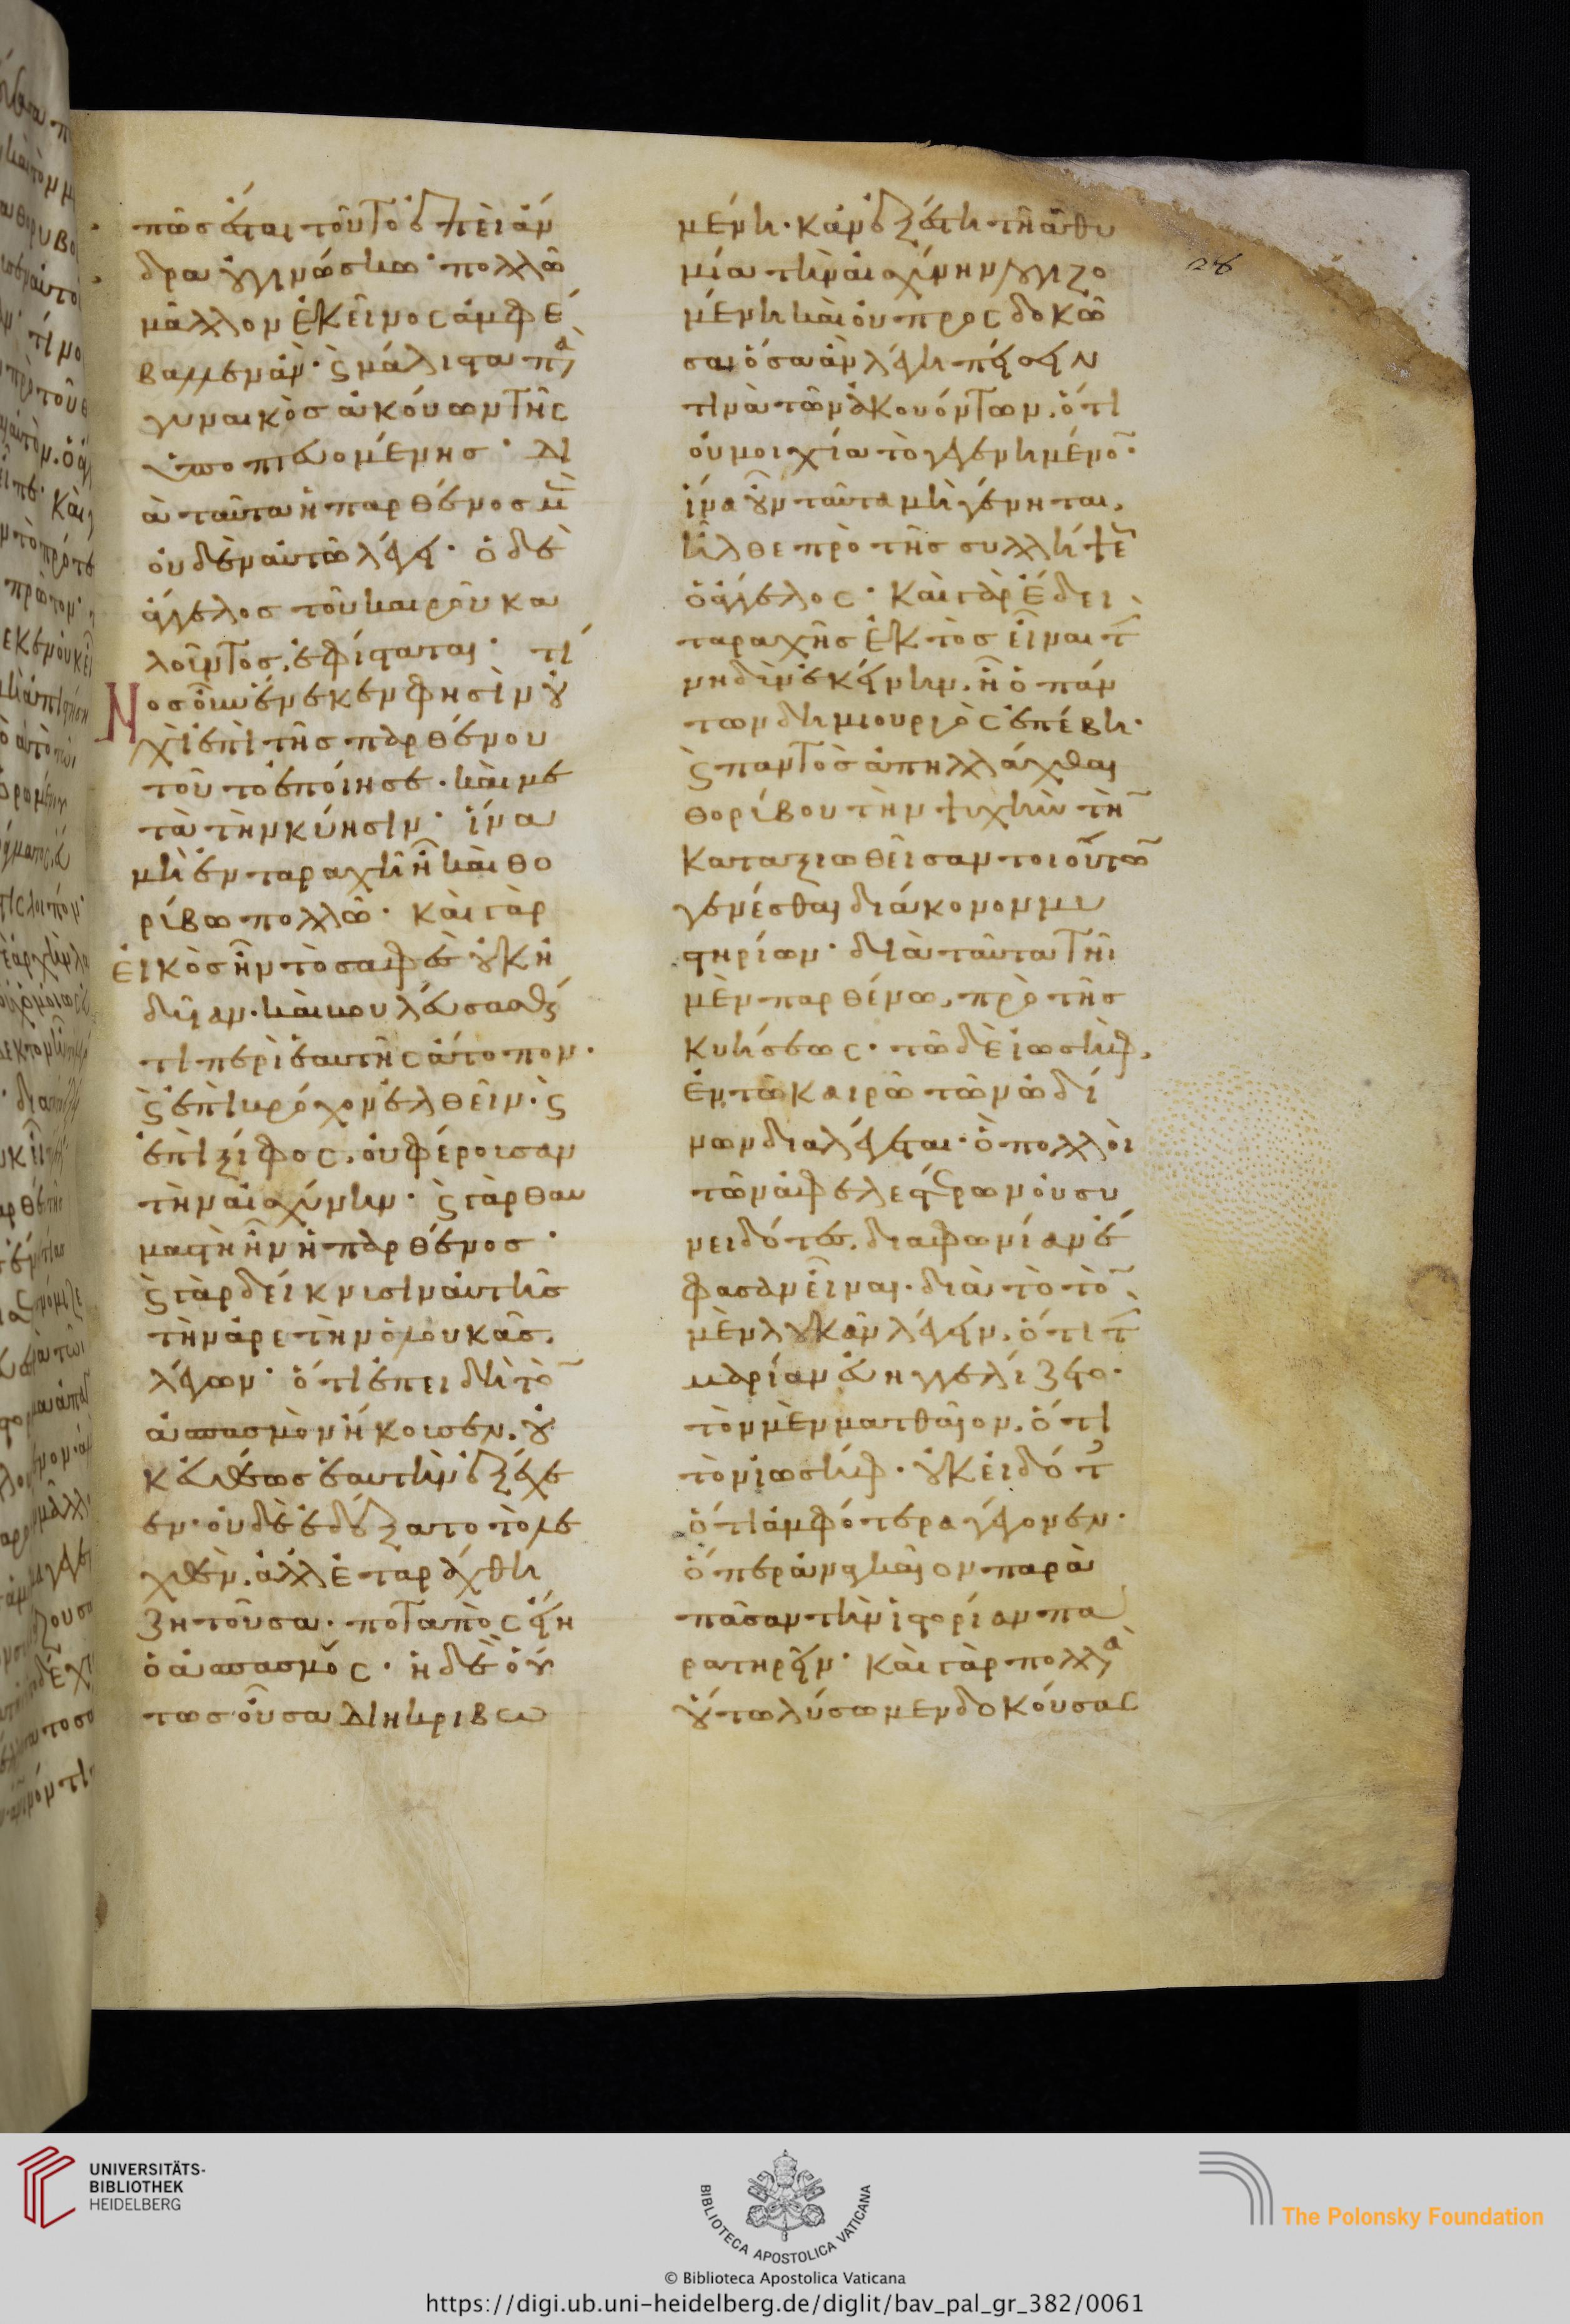 πῶς ἔσται τοῦτο ἐπεὶ ἄν
δρα οὐ γινώσκω· πολλῶ
μᾶλλον ἐκεῖνος ἀμφέ
βαλλεν ἄν· ϛ μάλιστα πὰ
γυναικὸς ἀκούων τῆς
ὑποπτευομένης· δι
ὰ ταῦτα ἡ παρθένος μὲν
οὐδὲν αὐτῶ λέγει· ὁ δὲ
ἄγγελος τοῦ καιροῦ κα
λοῦντος, ἐφίσταται· τί
νος οὖν ἕνεκεν φησὶν οὐ
χὶ ἐπὶ τῆς παρθένου
τοῦτο ἐποίησε· καὶ με
τὰ τὴν κύησιν· ἵνα
μὴ ἐν ταραχῆ ἦ καὶ θο
ρύβω πολλῶ· καὶ γὰρ
εἰκὸς ἦν τὸ σαφὲς οὐκ ἠ
δυῖαν· καὶ βουλεύσασθαί
τι περὶ ἑαυτῆς ἄτοπον·
ϛ ἐπὶ βρόχον ἐλθεῖν· ϛ
ἐπὶ ξίφος, οὐ φέρουσαν
τὴν αἰσχύνην· ϛ γὰρ θαυ
μαστὴ ἦν ἡ παρθένος·
ϛ γὰρ δείκνυσιν αὐτῆς
τὴν ἀρετὴν ὁ λουκᾶς,
λέγων· ὅτι ἐπειδὴ τὸ
ἀσπασμὸν ἤκουσεν, οὐ
κ εὐθέως ἑαυτὴν ἐξέχε
εν· οὐδὲ ἐδέξατο τὸ λε
χθὲν, ἀλλ ἐταράχθη
ζητοῦσα· ποταπὸς εἴη
ὁ ἀσπασμός· ἡ δὲ οὕ
τως οὖσα διηκριβω
μένη· κἂν ἐξέστη τῆ ἀθυ
μία τὴν αἰσχύνην λογιζο
μένη καὶ οὐ προσδοκῶ
σα ὅσα ἂν λέγη πείσειν
τινὰ τῶν ἀκουόντων, ὅτι
οὐ μοιχεία τὸ γεγενημένο·
ἵνα οὖν ταῦτα μὴ γένηται,
ἦλθε πρὸ τῆς συλλήψε
ὁ ἄγγελος· καὶ γὰρ ἔδει
ταραχῆς ἐκτὸς εἶναι τ
νηδὺν ἐκείνην, ἧ ὁ πάν
των δημιουργὸς ἐπέβη·
ϛ παντὸς ἀπηλλάχθαι
θορύβου τὴν ψυχὴν τὴ
καταξιωθεῖσαν τοιούτω
γενέσθαι διάκονον μυ
στηρίων· διὰ ταῦτα τῆ
μὲν παρθένω, πρὸ τῆς
κυήσεως· τῶ δὲ ἰωσὴφ,
ἐν τῶ καιρῶ τῶν ὠδί
νων διαλέγεται· ὃ πολλοὶ
τῶν ἀφελεστέρων οὐ συ
νειδότες, διαφωνίαν ἔ
φασαν εἶναι· διὰ τὸ τὸ
μὲν λουκᾶν λέγειν, ὅτι τ
μαρίαν εὐηγγελίζετο·
τὸν μὲν ματθαῖον, ὅτι
τὸν ἰωσήφ· οὐκ εἰδότ
ὅτι ἀμφότερα γέγονεν·
ὅπερ ἀναγκαῖον παρὰ
πᾶσαν τὴν ἱστορίαν πα
ρατηρεῖν· καὶ γὰρ πολλὰ
οὕτω λύσωμεν δοκούσας
26
UNIVERSITÄTS-
BIBLIOTHEK
HEIDELBERG
BIBLIOTECA APOSTOLICA VATICANA
The Polonsky Foundation
© Biblioteca Apostolica Vaticana
https://digi.ub.uni-heidelberg.de/diglit/bav_pal_gr_382/0061